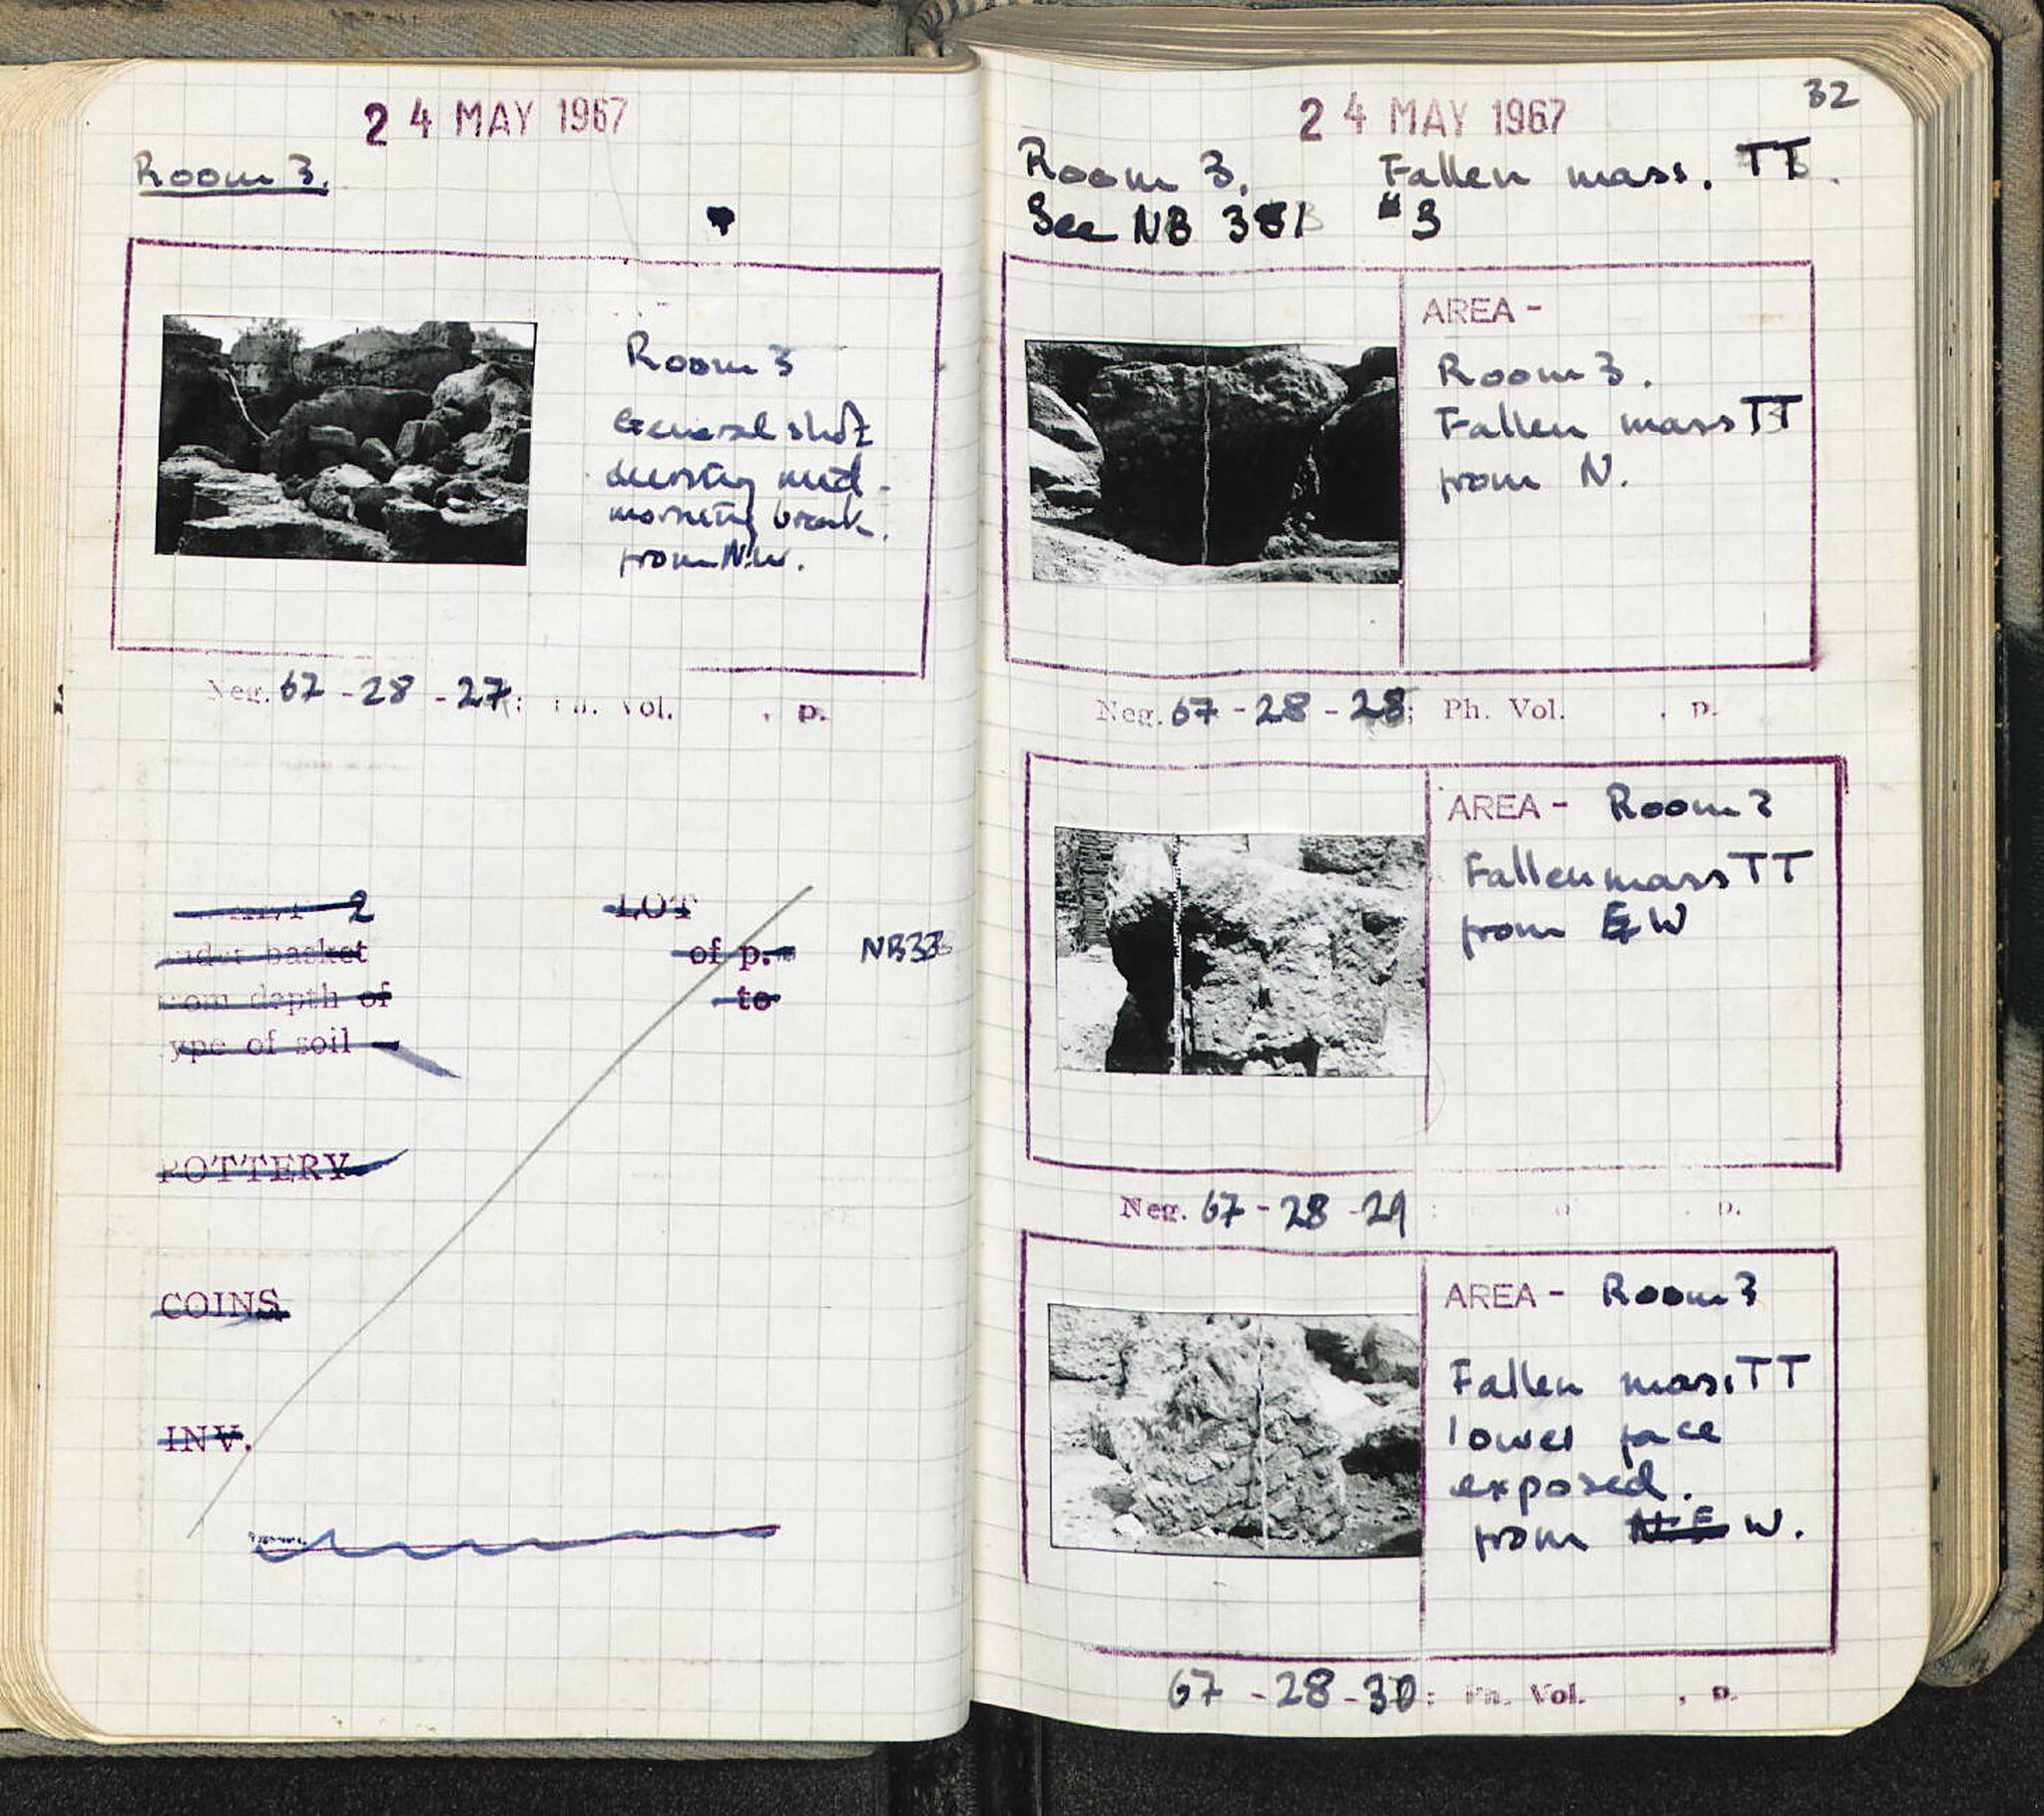 24 MAY 1967
Room 3.
Room 3
General shot
during mid-
morning break.
from N.W.
Neg. 67 - 28 - 27; Ph. Vol. , p.
2 LOT
under basket of p. NB33
from depth of to
type of soil
POTTERY
COINS
INV.
32
24 MAY 1967
Room 3. Fallen mass. TT.
See NB 381 #3
AREA -
Room 3.
Fallen mass TT
from N.
Neg. 67 - 28 - 28; Ph. Vol. , p.
AREA - Room 3
Fallen mass TT
from E W
Neg. 67 - 28 - 29 : p.
AREA - Room 3
Fallen mass TT
lower face
exposed.
from N.E W.
67 - 28 - 30: Ph. Vol. , p.